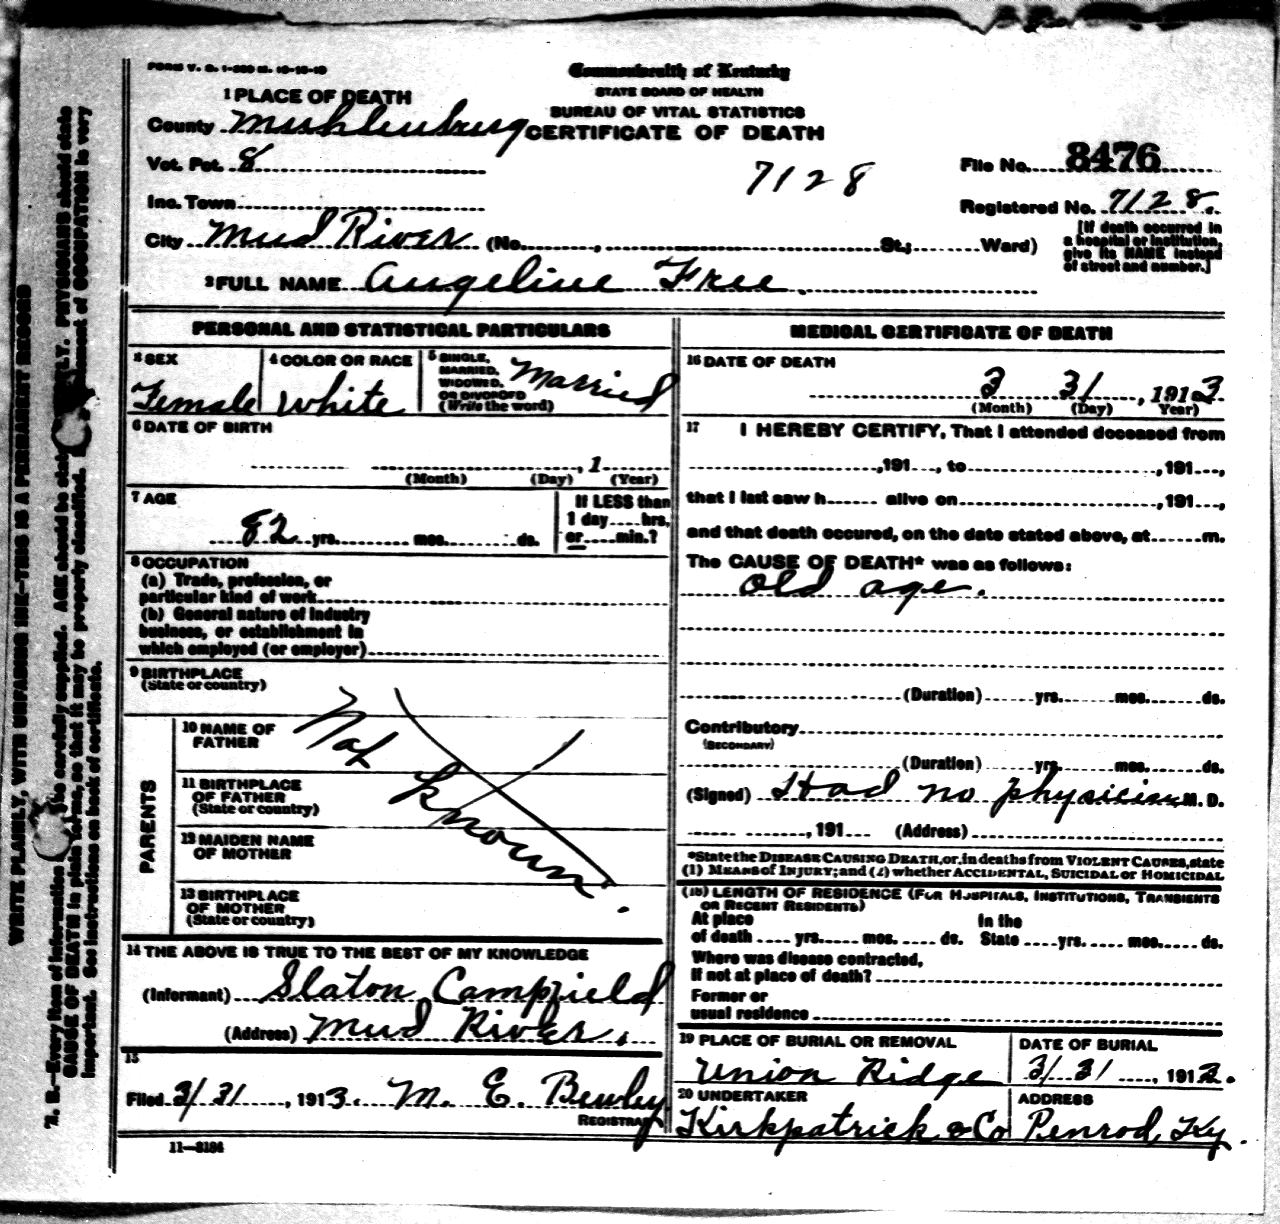 FORM V. S. 1-500 M. 10-10-10
Commonwealth of Kentucky
STATE BOARD OF HEALTH
BUREAU OF VITAL STATISTICS
CERTIFICATE OF DEATH
1 PLACE OF DEATH
County Muhlenburg
Vot. Pct. 8
Inc. Town
City Mud River (No. , St.; Ward)
7128
File No. 8476
Registered No. 7128.
[If death occurred in a hospital or institution, give its NAME instead of street and number.]
2 FULL NAME Angeline Free.
PERSONAL AND STATISTICAL PARTICULARS
3 SEX
Female
4 COLOR OR RACE
White
5 SINGLE, MARRIED, WIDOWED, OR DIVORCED (Write the word)
Married
6 DATE OF BIRTH
, 1
(Month) (Day) (Year)
7 AGE
82 yrs. mos. ds.
If LESS than 1 day hrs. or min.?
8 OCCUPATION
(a) Trade, profession, or
particular kind of work
(b) General nature of industry
business, or establishment in
which employed (or employer)
9 BIRTHPLACE
(State or country)
PARENTS
10 NAME OF FATHER
11 BIRTHPLACE OF FATHER (State or country)
12 MAIDEN NAME OF MOTHER
13 BIRTHPLACE OF MOTHER (State or country)
Not known.
14 THE ABOVE IS TRUE TO THE BEST OF MY KNOWLEDGE
(Informant) Slaton Campfield
(Address) Mud River.
15
Filed 3/31, 1913. M. E. Bewley
REGISTRAR
11—3184
MEDICAL CERTIFICATE OF DEATH
16 DATE OF DEATH
3 31, 1913
(Month) (Day) Year)
17 I HEREBY CERTIFY, That I attended deceased from
, 191 , to , 191 ,
that I last saw h alive on , 191 ,
and that death occured, on the date stated above, at m.
The CAUSE OF DEATH* was as follows:
Old age.
(Duration) yrs. mos. ds.
Contributory
(SECONDARY)
(Duration) yrs. mos. ds.
(Signed) Had no physician M. D.
, 191 (Address)
*State the DISEASE CAUSING DEATH, or, in deaths from VIOLENT CAUSES, state
(1) MEANS of INJURY; and (2) whether ACCIDENTAL, SUICIDAL or HOMICIDAL
(18) LENGTH OF RESIDENCE (FOR HOSPITALS, INSTITUTIONS, TRANSIENTS
OR RECENT RESIDENTS)
At place of death yrs. mos. ds. In the State yrs. mos. ds.
Where was disease contracted,
If not at place of death?
Former or
usual residence
19 PLACE OF BURIAL OR REMOVAL
Union Ridge
DATE OF BURIAL
3/31, 1913.
20 UNDERTAKER
Kirkpatrick & Co
ADDRESS
Penrod, Ky.
WRITE PLAINLY, WITH UNFADING INK—THIS IS A PERMANENT RECORD
N. B.—Every item of information be carefully supplied. AGE should be PHYSICIANS should state
CAUSE OF DEATH in plain terms, so that it may be properly classified. of OCCUPATION is very
important. See instructions on back of certificate.